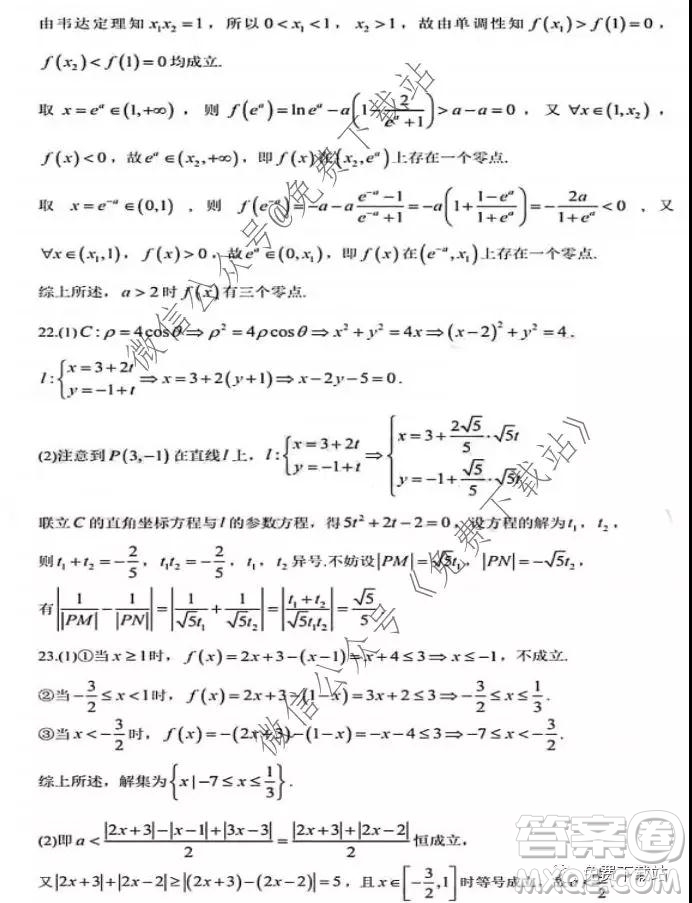 由韦达定理知 x₁x₂=1，所以 0<x₁<1，x₂>1，故由单调性知 f(x₁)>f(1)=0，
f(x₂)<f(1)=0均成立.
取 x=eᵃ∈(1,+∞)，则 f(eᵃ)=ln eᵃ-a(1-2/(eᵃ+1))>a-a=0，又 ∀x∈(1,x₂)，
f(x)<0，故eᵃ∈(x₂,+∞)，即 f(x)在(x₂,eᵃ)上存在一个零点.
取 x=e⁻ᵃ∈(0,1)，则 f(e⁻ᵃ)=-a-a(e⁻ᵃ-1)/(e⁻ᵃ+1)=-a(1+(1-eᵃ)/(1+eᵃ))=-2a/(1+eᵃ)<0，又
∀x∈(x₁,1)，f(x)>0，故eᵃ∈(0,x₁)，即 f(x)在(e⁻ᵃ,x₁)上存在一个零点.
综上所述，a>2时f(x)有三个零点.
22.(1)C:ρ=4cosθ⇒ρ²=4ρcosθ⇒x²+y²=4x⇒(x-2)²+y²=4.
l:{x=3+2t y=-1+t⇒x=3+2(y+1)⇒x-2y-5=0.
(2)注意到P(3,-1)在直线l上，l:{x=3+2t y=-1+t⇒{x=3+(2√5/5)·√5t y=-1+(√5/5)·√5t
联立C的直角坐标方程与l的参数方程，得5t²+2t-2=0，设方程的解为t₁，t₂，
则t₁+t₂=-2/5，t₁t₂=-2/5，t₁，t₂异号.不妨设|PM|=√5t₁，|PN|=-√5t₂，
有|1/|PM|-1/|PN||=|1/(√5t₁)+1/(√5t₂)|=|(t₁+t₂)/(√5t₁t₂)|=√5/5
23.(1)①当x≥1时，f(x)=2x+3-(x-1)=x+4≤3⇒x≤-1，不成立.
②当-3/2≤x<1时，f(x)=2x+3-(1-x)=3x+2≤3⇒-3/2≤x≤1/3.
③当x<-3/2时，f(x)=-(2x+3)-(1-x)=-x-4≤3⇒-7≤x<-3/2.
综上所述，解集为{x|-7≤x≤1/3}.
(2)即a<(|2x+3|-|x-1|+|3x-3|)/2=(|2x+3|+|2x-2|)/2恒成立，
又|2x+3|+|2x-2|≥|(2x+3)-(2x-2)|=5，且x∈[-3/2,1]时等号成立
微信公众号@免费下载站
微信公众号《免费下载站》
免费下载站
答案圈
MXQE.COM